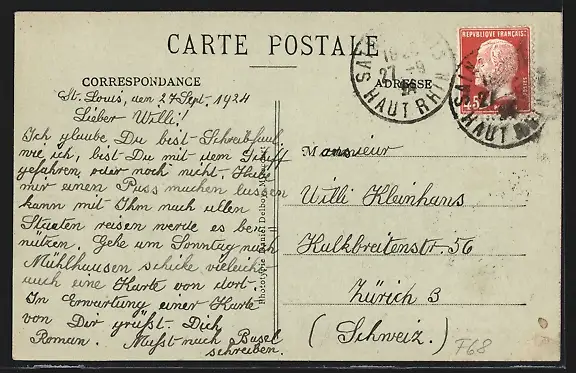 CARTE POSTALE
CORRESPONDANCE
St. Louis, den 27 Sept. 1924
Lieber Willi!
Ich glaube Du bist Schreibfaul
wie ich, bist Du mit dem Schiff
gefahren, oder noch nicht. Habe
mir einen Pass machen lassen
kann mit Ihm nach allen
Staaten reisen werde es be=
nutzen. Gehe am Sonntag nach
Mühlhausen schicke vieleicht
auch eine Karte von dort.
In Erwartung einer Karte
von Dir grüßt Dich
Roman. Mußt nach Basel
schreiben.
Phototypie Daniel Delboy
ADRESSE
Monsieur
Willi Kleinhans
Kalkbreitenstr. 56
Zürich 3
(Schweiz.)
F68
REPUBLIQUE FRANÇAISE
POSTES
SAINT
27 -9
HAUT RHIN
SAINT
HAUT RHIN